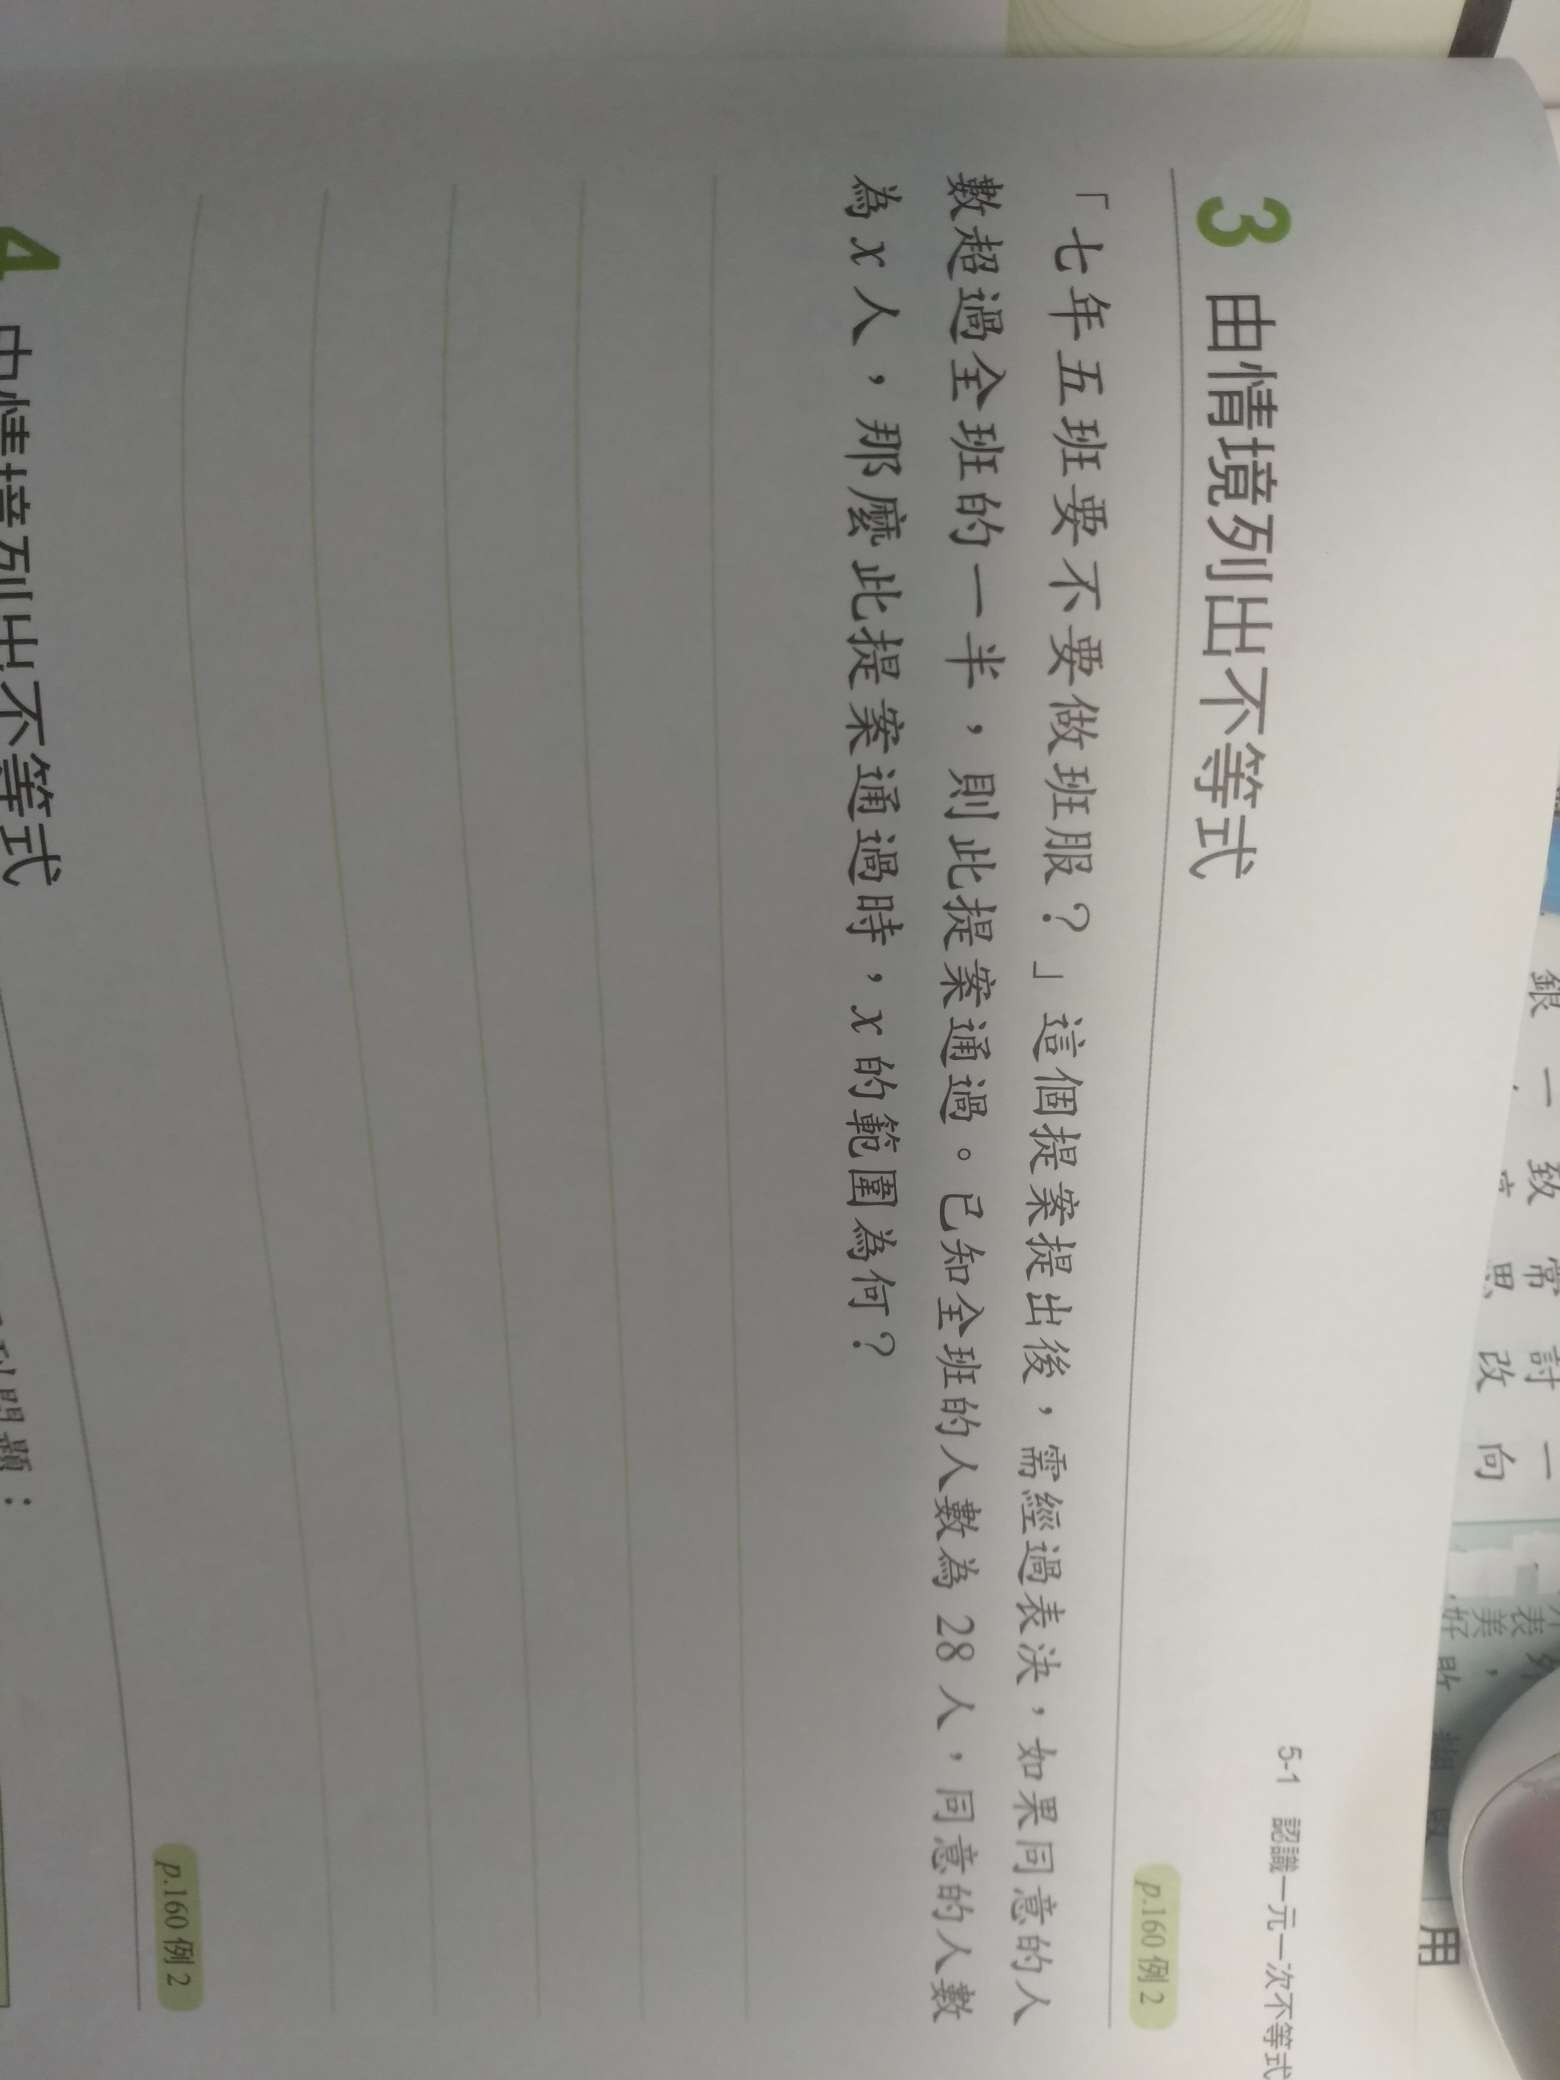 5-1 認識一元一次不等式
3 由情境列出不等式
p.160 例 2
「七年五班要不要做班服？」這個提案提出後，需經過表決，如果同意的人
數超過全班的一半，則此提案通過。已知全班的人數為 28 人，同意的人數
為 x 人，那麼此提案通過時，x 的範圍為何？
4 由情境列出不等式
p.160 例 2
問題：
銀 一 致 常 討 一
思 改 向
用